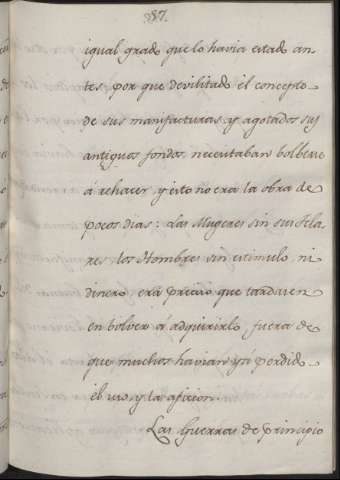 387.
igual grado que lo havia estado an-
tes por que devilitado el concepto
de sus manufacturas, y agotados sus
antiguos fondos necesitaban bolberse
á rehacer y esto no era la obra de
pocos dias: Las Mugeres sin sus Tela-
res los Hombres sin estimulo ni
dinero era preciso que tardasen
en bolver á adquirirlo, fuera de
que muchos havian ysi perdido
el uso, y la aficion.
Las Guerras de principio